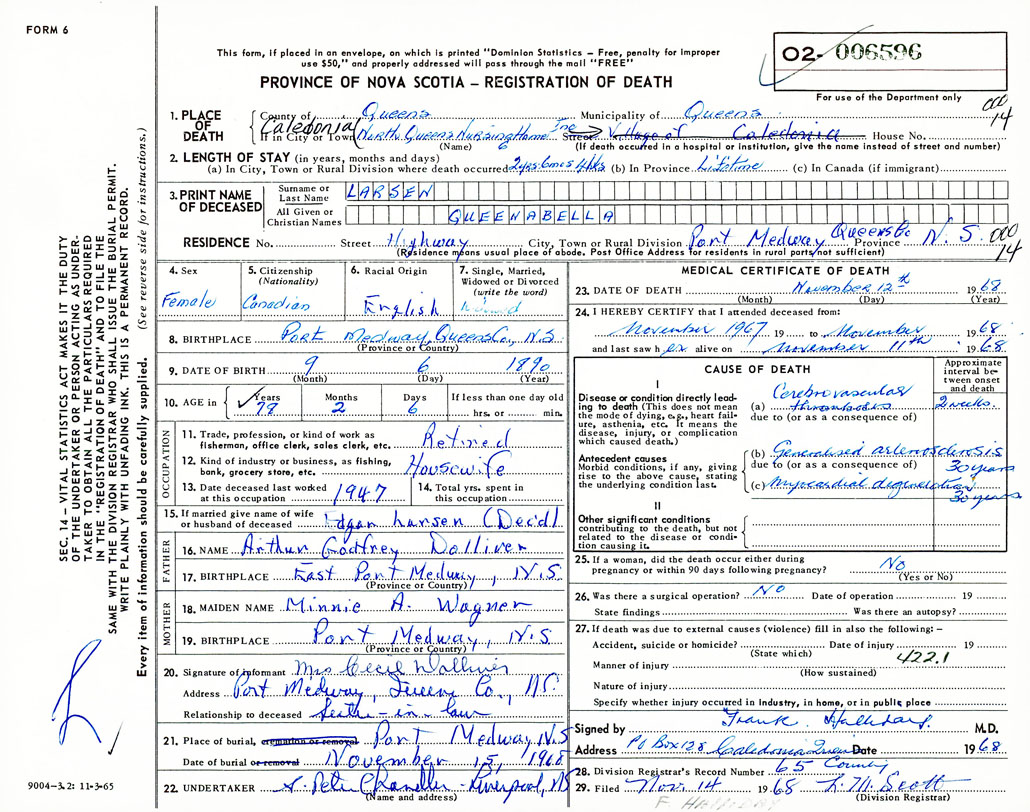 FORM 6
This form, if placed in an envelope, on which is printed "Dominion Statistics – Free, penalty for improper
use $50," and properly addressed will pass through the mail "FREE"
PROVINCE OF NOVA SCOTIA – REGISTRATION OF DEATH
02- 006596
For use of the Department only
000
14
1. PLACE OF DEATH
County of Queens Municipality of Queens
If in City or Town Caledonia (North Queens Nursing Home Inc Street Village of Caledonia House No.
(Name) (If death occurred in a hospital or institution, give the name instead of street and number)
2. LENGTH OF STAY (in years, months and days)
(a) In City, Town or Rural Division where death occurred 2 yrs 6 mos (b) In Province Lifetime (c) In Canada (if immigrant)
3. PRINT NAME OF DECEASED
Surname or Last Name LARSEN
All Given or Christian Names QUEENABELLA
RESIDENCE No. Street Highway City, Town or Rural Division Port Medway Queens Co Province N.S.
(Residence means usual place of abode. Post Office Address for residents in rural parts not sufficient)
000
14
4. Sex
Female
5. Citizenship
(Nationality)
Canadian
6. Racial Origin
English
7. Single, Married,
Widowed or Divorced
(write the word)
8. BIRTHPLACE Port Medway, Queens Co., N.S
(Province or Country)
9. DATE OF BIRTH 9 6 1890
(Month) (Day) (Year)
10. AGE in
Years Months Days If less than one day old
78 2 6 hrs. or min.
OCCUPATION
11. Trade, profession, or kind of work as
fisherman, office clerk, sales clerk, etc. Retired
12. Kind of industry or business, as fishing,
bank, grocery store, etc. Housewife
13. Date deceased last worked
at this occupation 1947
14. Total yrs. spent in
this occupation
15. If married give name of wife
or husband of deceased Edgar Larsen (Dec'd)
FATHER
16. NAME Arthur Godfrey Dolliver
17. BIRTHPLACE East Port Medway, N.S
(Province or Country)
MOTHER
18. MAIDEN NAME Minnie A. Wagner
19. BIRTHPLACE Port Medway, N.S
(Province or Country)
20. Signature of informant Mrs Cecil Dolliver
Address Port Medway, Queens Co., N.S.
Relationship to deceased Sister-in-law
21. Place of burial, cremation or removal Port Medway N.S
Date of burial or removal November 15, 1968
22. UNDERTAKER Peter Chandler Liverpool, NS
(Name and address)
MEDICAL CERTIFICATE OF DEATH
23. DATE OF DEATH November 12th 1968
(Month) (Day) (Year)
24. I HEREBY CERTIFY that I attended deceased from:
November 1967 19 to November 1968
and last saw her alive on November 11th 1968
CAUSE OF DEATH
Approximate
interval be-
tween onset
and death
I
Disease or condition directly lead-
ing to death (This does not mean
the mode of dying, e.g., heart fail-
ure, asthenia, etc. It means the
disease, injury, or complication
which caused death.)
Cerebrovascular
(a) thrombosis 2 weeks.
due to (or as a consequence of)
Antecedent causes
Morbid conditions, if any, giving
rise to the above cause, stating
the underlying condition last.
(b) Generalised arteriosclerosis
due to (or as a consequence of) 30 years
(c) Myocardial degeneration
30 years
II
Other significant conditions
contributing to the death, but not
related to the disease or condi-
tion causing it.
25. If a woman, did the death occur either during
pregnancy or within 90 days following pregnancy? No
(Yes or No)
26. Was there a surgical operation? No Date of operation 19
State findings Was there an autopsy?
27. If death was due to external causes (violence) fill in also the following: –
Accident, suicide or homicide? Date of injury 19
(State which)
422.1
Manner of injury
(How sustained)
Nature of injury
Specify whether injury occurred in industry, in home, or in public place
Signed by Frank Halliday. M.D.
Address PO Box 128 Caledonia Queens Date 1968
County
28. Division Registrar's Record Number 65
29. Filed Nov. 14 1968 L. M. Scott
(Division Registrar)
F HALLIDAY
SEC. 14 – VITAL STATISTICS ACT MAKES IT THE DUTY
OF THE UNDERTAKER OR PERSON ACTING AS UNDER-
TAKER TO OBTAIN ALL THE PARTICULARS REQUIRED
IN THE "REGISTRATION OF DEATH" AND TO FILE THE
SAME WITH THE DIVISION REGISTRAR WHO SHALL ISSUE THE BURIAL PERMIT.
WRITE PLAINLY WITH UNFADING INK. THIS IS A PERMANENT RECORD.
Every item of information should be carefully supplied. (See reverse side for instructions.)
9004-3.2: 11-3-65